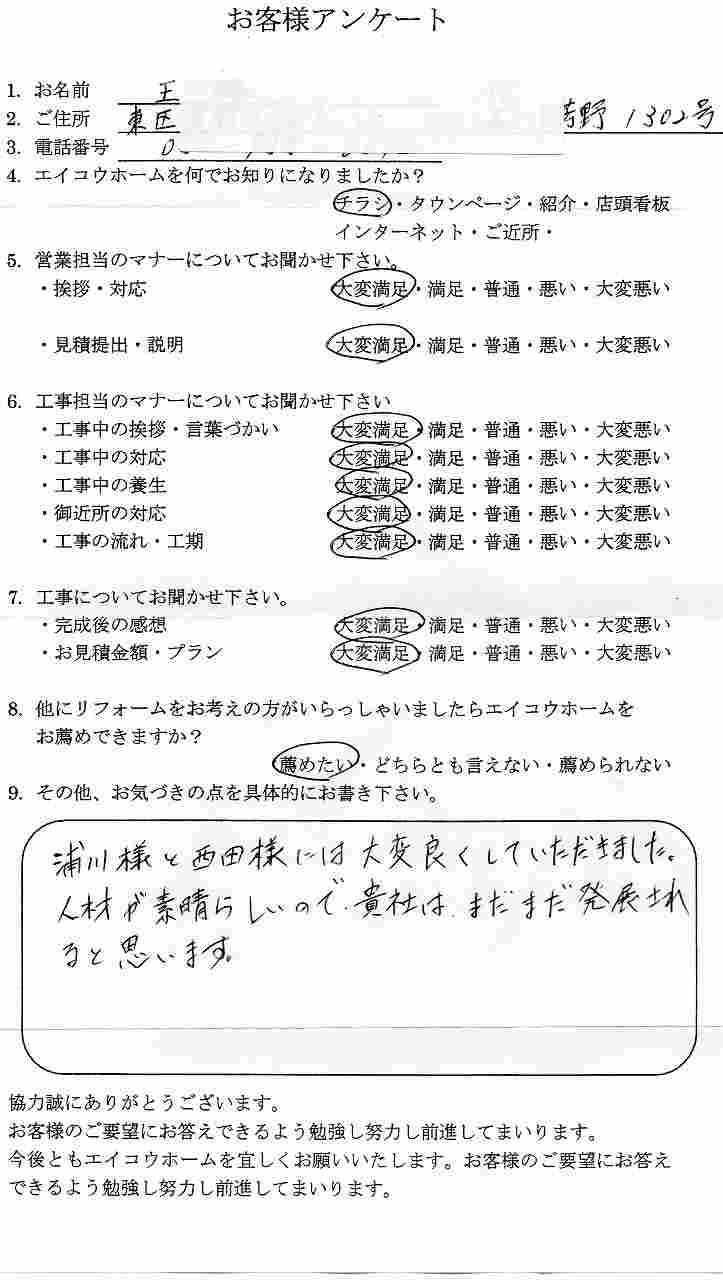 お客様アンケート
1. お名前 王
2. ご住所 東区 野 1302号
3. 電話番号
4. エイコウホームを何でお知りになりましたか？
チラシ・タウンページ・紹介・店頭看板
インターネット・ご近所・
5. 営業担当のマナーについてお聞かせ下さい。
・挨拶・対応 大変満足・満足・普通・悪い・大変悪い
・見積提出・説明 大変満足・満足・普通・悪い・大変悪い
6. 工事担当のマナーについてお聞かせ下さい
・工事中の挨拶・言葉づかい 大変満足・満足・普通・悪い・大変悪い
・工事中の対応 大変満足・満足・普通・悪い・大変悪い
・工事中の養生 大変満足・満足・普通・悪い・大変悪い
・御近所の対応 大変満足・満足・普通・悪い・大変悪い
・工事の流れ・工期 大変満足・満足・普通・悪い・大変悪い
7. 工事についてお聞かせ下さい。
・完成後の感想 大変満足・満足・普通・悪い・大変悪い
・お見積金額・プラン 大変満足・満足・普通・悪い・大変悪い
8. 他にリフォームをお考えの方がいらっしゃいましたらエイコウホームを
お薦めできますか？
薦めたい・どちらとも言えない・薦められない
9. その他、お気づきの点を具体的にお書き下さい。
浦川様と西田様には大変良くしていただきました。
人材が素晴らしいので、貴社は、まだまだ発展され
ると思います。
協力誠にありがとうございます。
お客様のご要望にお答えできるよう勉強し努力し前進してまいります。
今後ともエイコウホームを宜しくお願いいたします。お客様のご要望にお答え
できるよう勉強し努力し前進してまいります。